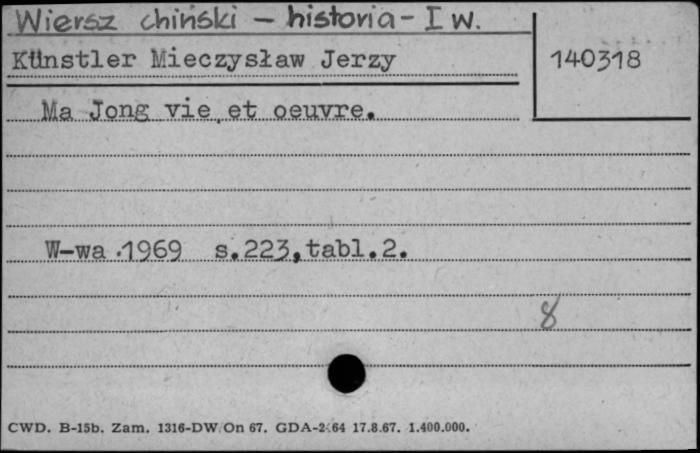 Wiersz chiński - historia - I w.
Künstler Mieczysław Jerzy
140318
Ma Jong vie et oeuvre.
W-wa 1969 s.223,tabl.2.
8
CWD. B-15b. Zam. 1316-DW/On 67. GDA-2.64 17.8.67. 1.400.000.